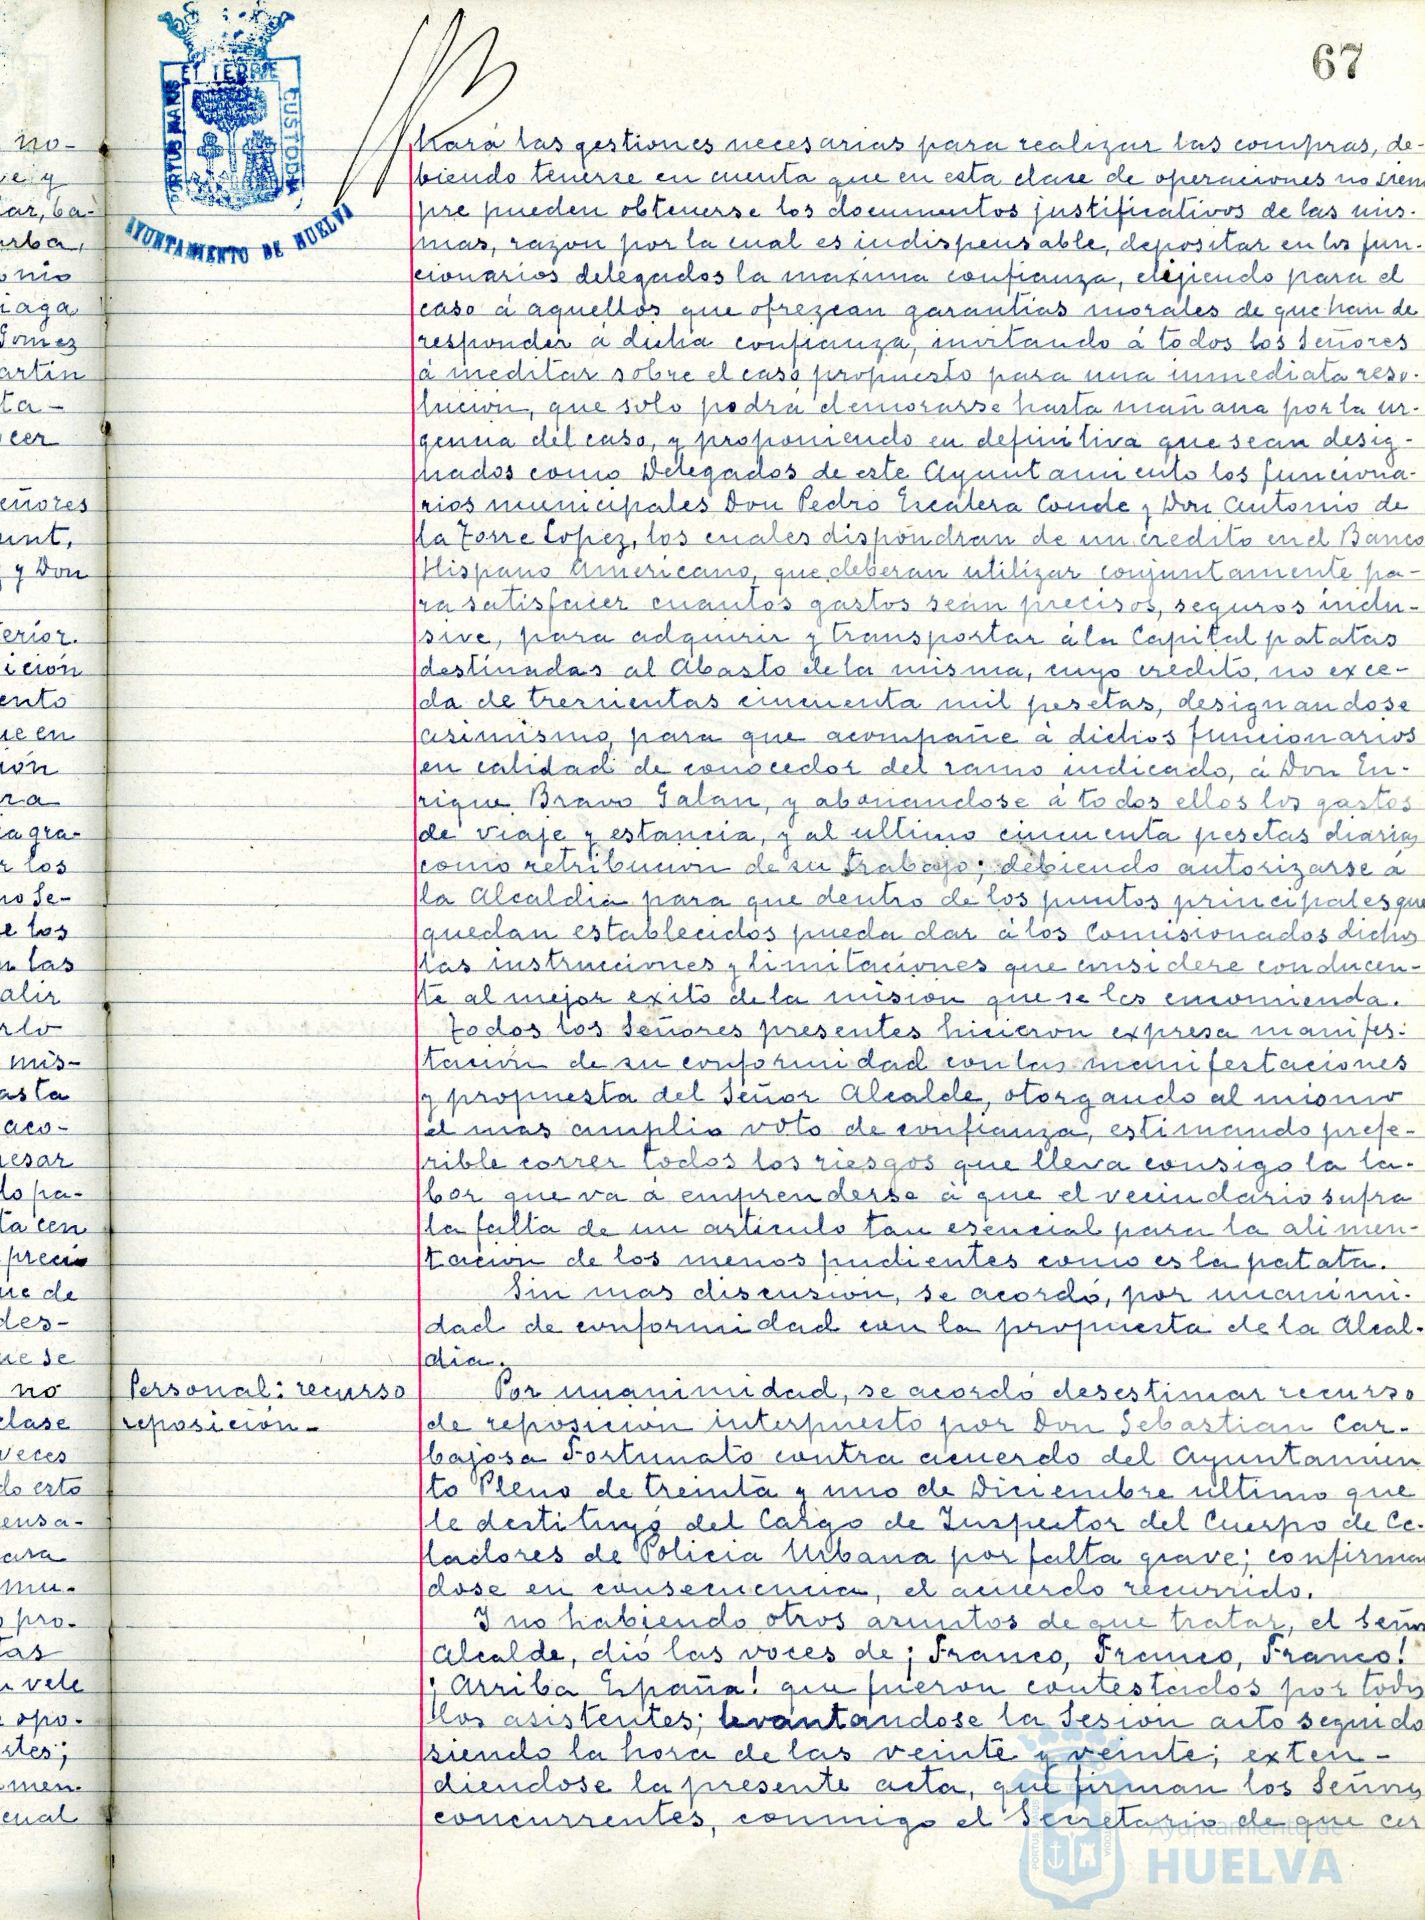 67
PORTUS MARIS
ET TERRE
CUSTODIA
AYUNTAMIENTO DE HUELVA
hará las gestiones necesarias para realizar las compras, de-
biendo tenerse en cuenta que en esta clase de operaciones no siem
pre pueden obtenerse los documentos justificativos de las mis-
mas, razon por la cual es indispensable, depositar en los fun-
cionarios delegados la maxima confianza, elijiendo para el
caso á aquellos que ofrezcan garantias morales de que han de
responder á dicha confianza, invitando á todos los Señores
á meditar sobre el caso propuesto para una inmediata reso-
lucion, que solo podrá demorarse hasta mañana por la ur-
gencia del caso, y proponiendo en definitiva que sean desig-
nados como Delegados de este Ayuntamiento los funciona-
rios municipales Don Pedro Escalera Conde y Don Antonio de
la Torre Lopez, los cuales dispondran de un credito en el Banco
Hispano Americano, que deberan utilizar conjuntamente pa-
ra satisfacer cuantos gastos sean precisos, seguros inclu-
sive, para adquirir y transportar á la Capital patatas
destinadas al Abasto de la misma, cuyo credito, no exce-
da de trescientas cincuenta mil pesetas, designandose
asimismo, para que acompañe á dichos funcionarios
en calidad de conocedor del ramo indicado, á Don En-
rique Bravo Galan, y abonandose á todos ellos los gastos
de viaje y estancia, y al ultimo cincuenta pesetas diarias
como retribucion de su trabajo; debiendo autorizarse á
la Alcaldia para que dentro de los puntos principales que
quedan establecidos pueda dar á los Comisionados dichos
las instrucciones y limitaciones que considere conducen-
te al mejor exito de la mision que se les encomienda.
Todos los Señores presentes hicieron expresa manifes-
tación de su conformidad con las manifestaciones
y propuesta del Señor Alcalde, otorgando al mismo
el mas amplio voto de confianza, estimando prefe-
rible correr todos los riesgos que lleva consigo la la-
bor que va á emprenderse á que el vecindario sufra
la falta de un articulo tan esencial para la alimen-
tacion de los menos pudientes como es la patata.
Sin mas discusion, se acordó, por unanimi-
dad de conformidad con la propuesta de la Alcal-
dia.
Personal: recurso
reposición.-
Por unanimidad, se acordó desestimar recurso
de reposición interpuesto por Don Sebastian Car-
bajosa Fortunato contra acuerdo del Ayuntamien
to Pleno de treinta y uno de Diciembre ultimo que
le destituyó del Cargo de Inspector del Cuerpo de Ce-
ladores de Policia Urbana por falta grave; confirman
dose en consecuencia, el acuerdo recurrido.
Y no habiendo otros asuntos de que tratar, el Señor
Alcalde, dió las voces de ¡Franco, Franco, Franco!
¡Arriba España! que fueron contestados por todos
los asistentes; levantandose la Sesion acto seguido
siendo la hora de las veinte y veinte; exten-
diendose la presente acta, que firman los Señores
concurrentes, conmigo el Secretario de que cer
Ayuntamiento de
HUELVA